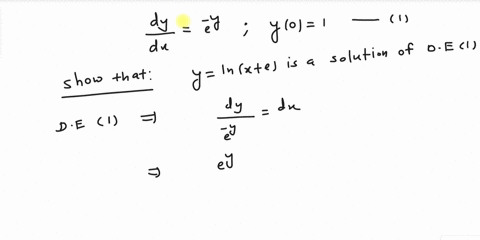 dy/dx = e^-y ; y(0) = 1 —— (1)
show that: y = ln(x+e) is a solution of D.E (1)
D.E (1) ⇒ dy/e^-y = dx
⇒ e^y